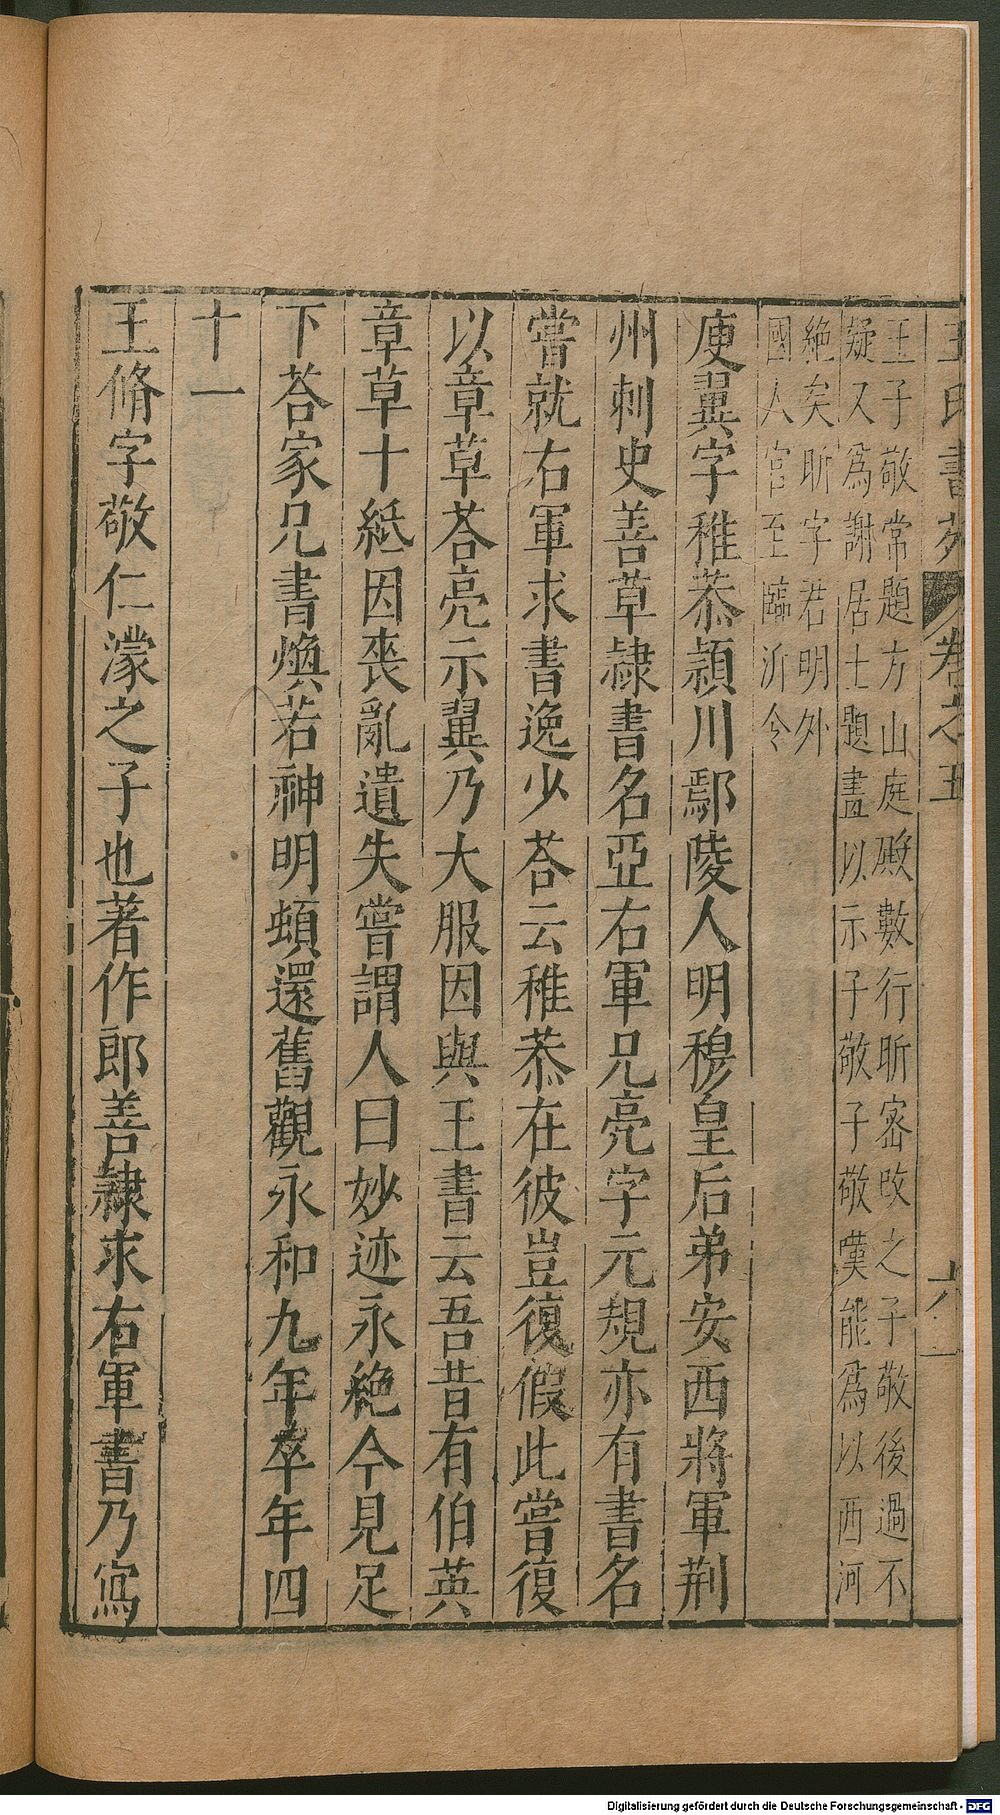 王氏書苑 卷之五 六
王子敬常題方山庭殿數行昕密改之子敬後過不
疑又為謝居士題畫以示子敬子敬嘆能為以西河
絶矣昕字君明外
國人官至臨沂令
庾翼字稚恭潁川鄢陵人明穆皇后弟安西將軍荆
州刺史善草隷書名亞右軍兄亮字元規亦有書名
嘗就右軍求書逸少荅云稚恭在彼豈復假此嘗復
以章草荅亮示翼乃大服因與王書云吾昔有伯英
章草十紙因喪亂遺失嘗謂人曰妙迹永絶今見足
下荅家兄書煥若神明頓還舊觀永和九年卒年四
十一
王脩字敬仁濛之子也著作郎善隷求右軍書乃寫
Digitalisierung gefördert durch die Deutsche Forschungsgemeinschaft - DFG